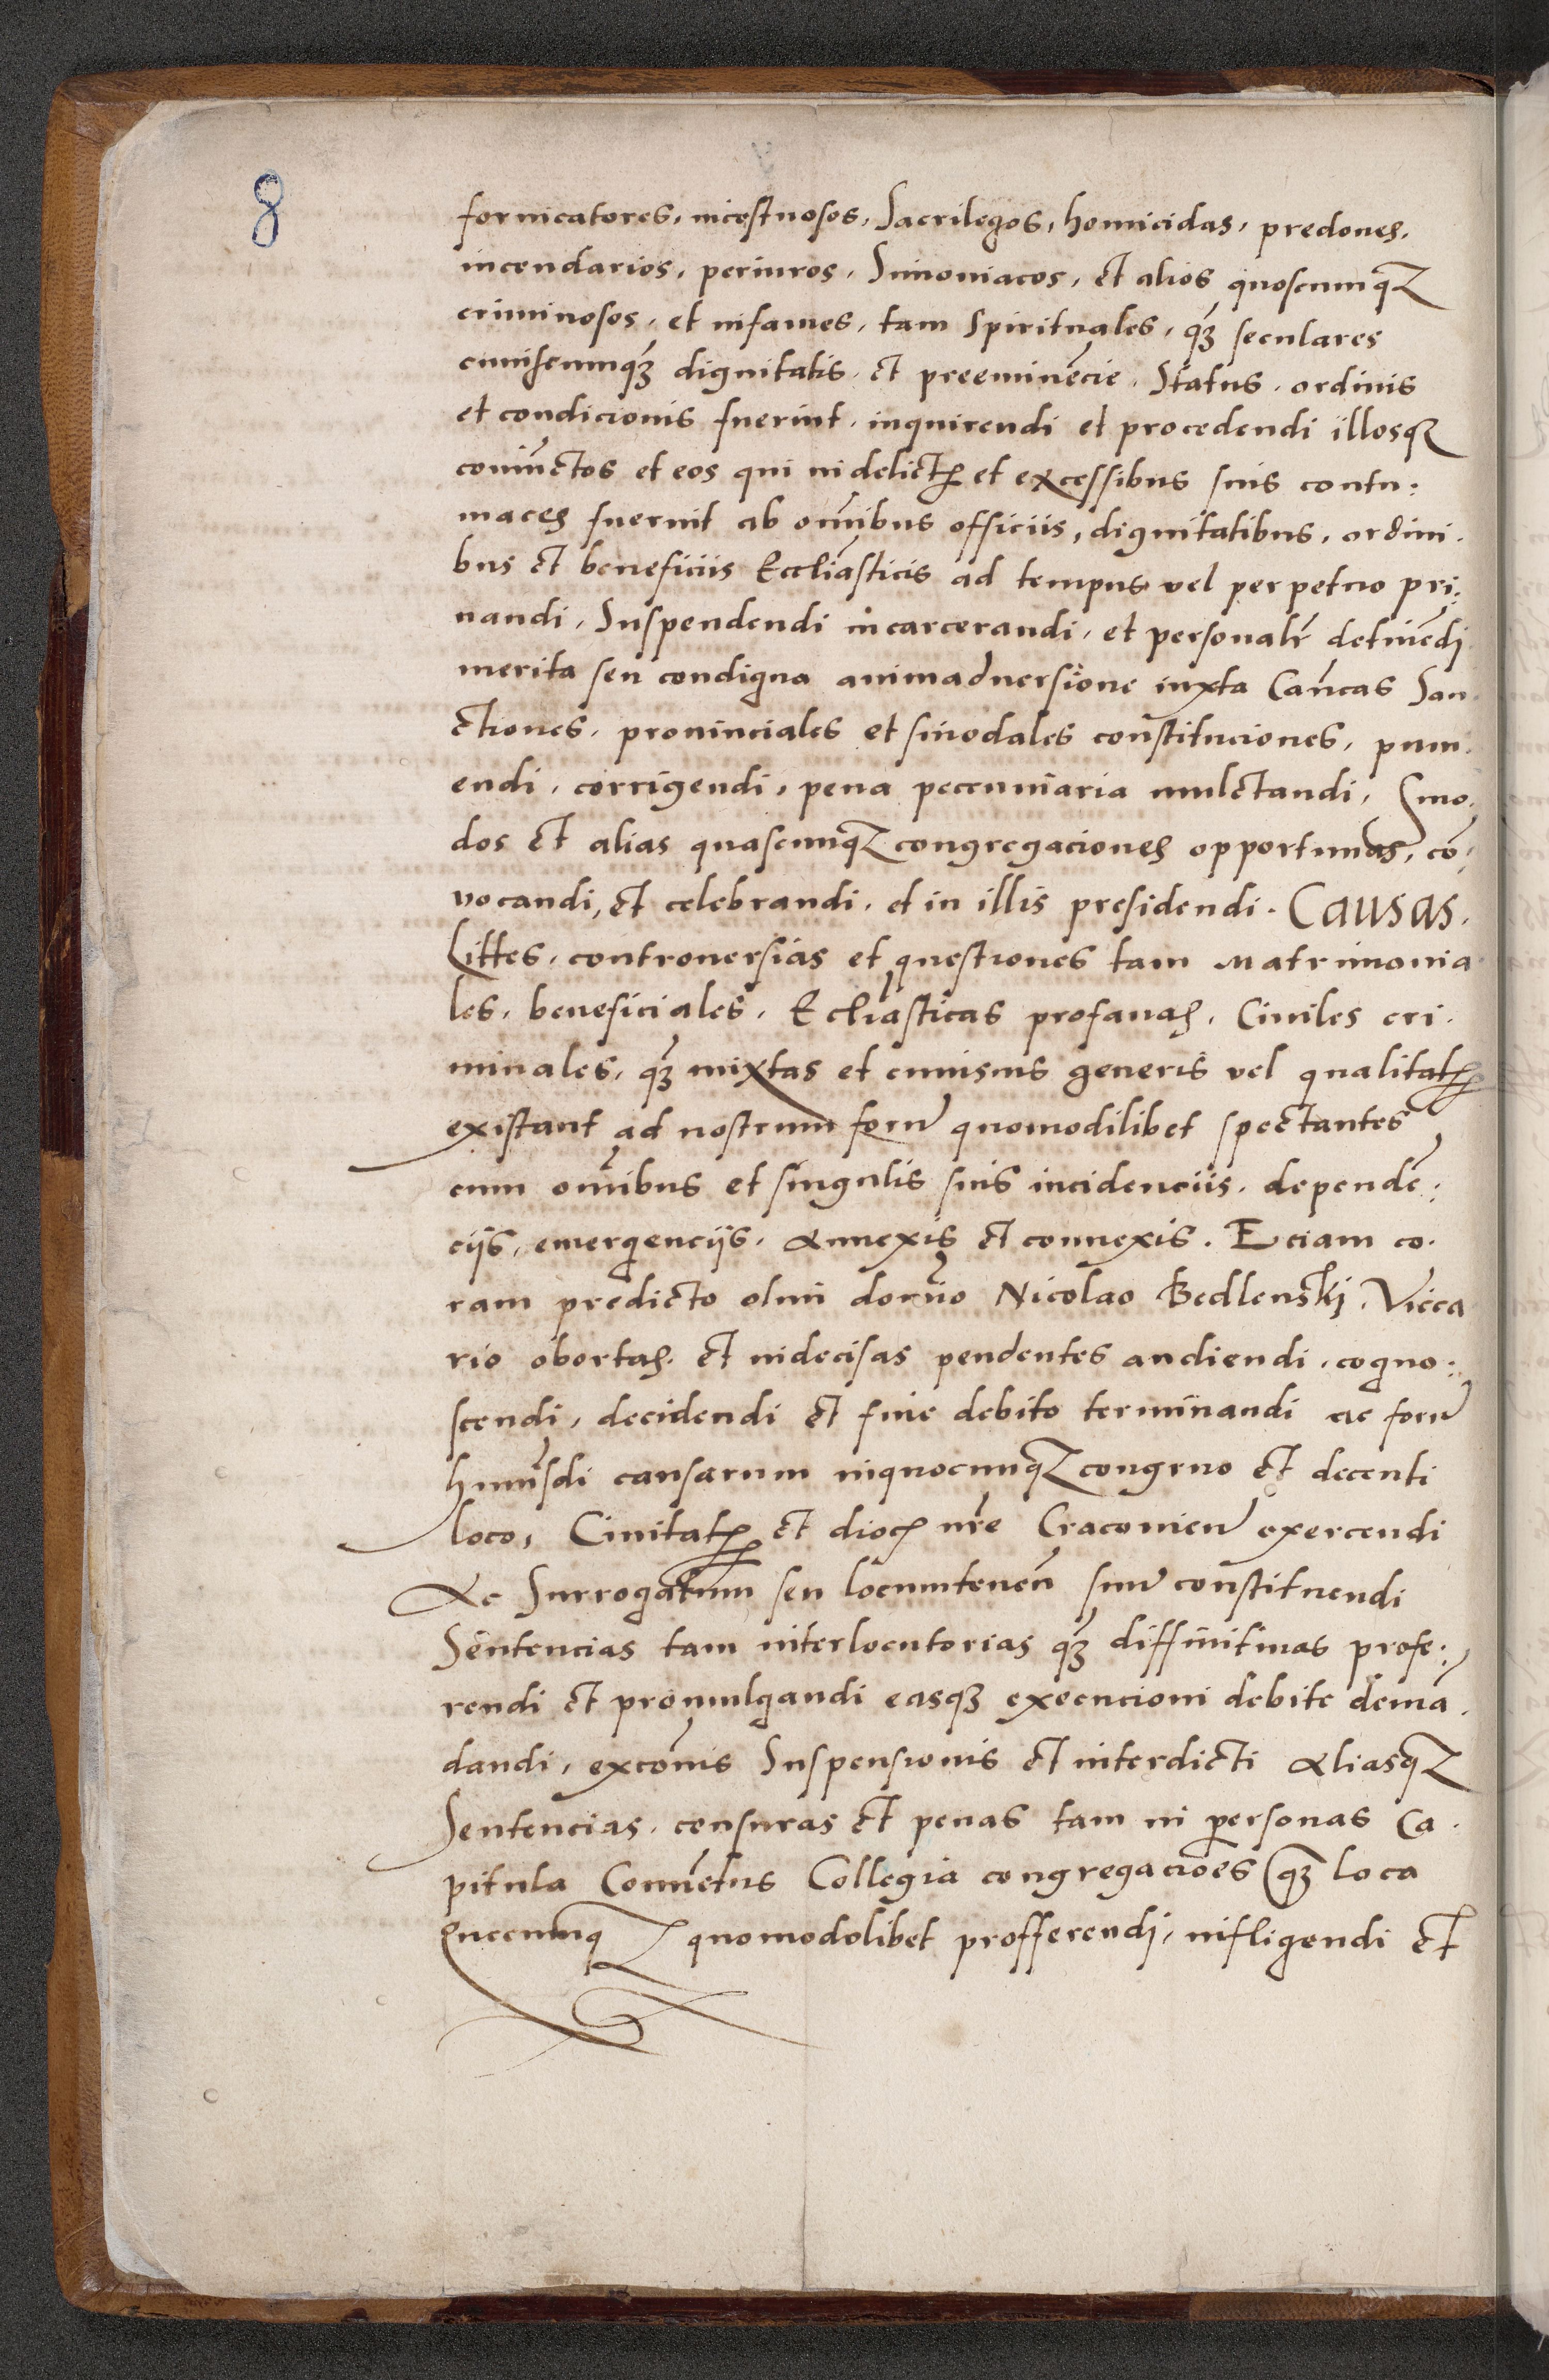 8
fornicatores, incestuosos, Sacrilegos, homicidas, predones,
incendarios, periuros, Simoniacos, et alios quoscumqȝ
criminosos, et infames, tam Spirituales, qȝ seculares
cuiuscumqȝ dignitatis et preeminēcie, Status, ordinis
et condicionis fuerint, inquirendi et procedendi illosqȝ
coniūctos et eos qui in delictꝭ et excessibus suis contu:
maces fuerint ab om̄ibus officiis, dignitatibus, ordini.
bus et beneficiis Eccliāsticis ad tempus vel perpetuo pri:
uandi, Suspendendi incarcerandi, et personalr̄ detinēdi
merita seu condigna animaduersione iuxta Can̄cas San
ctiones, prouinciales et sinodales constituciones, puni.
endi, corrigendi, pena peccuniaria mulctandi, Sino.
dos et alias quascumqȝ congregaciones opportunas, cō:
vocandi, et celebrandi, et in illis presidendi. Causas.
Littes, controuersias et questiones tam Matrimonia
les, beneficiales, Eccliāsticas profanas, Ciuiles cri.
minales, qȝ mixtas et cuiusuis generis vel qualitatꝭ
existant ad nostrum forū quomodilibet spectantes
cum om̄ibus et singulis suis incidenciis, dependē:
ciis, emergenciis, Annexis et connexis. Eciam co.
ram predicto olim domīno Nicolao Bedlenski, Vicca
rio obortas et indecisas pendentes audiendi, cogno:
scendi, decidendi et fine debito terminandi ac forū
huiūsdi causarum in quocumqȝ congruo et decenti
loco, Ciuitatꝭ et dioc̄ nr̄e Cracouien̄ exercendi
Ac Surrogatum seu locumtenen̄ suū constituendi
Sentencias tam interlocutorias qȝ diffinitiuas profe:
rendi et promulgandi easqȝ execucioni debite demā.
dandi, excom̄is Suspensionis et interdicti Aliasqȝ
Sentencias, censuras et penas tam in personas Ca.
pitula Conuētus Collegia congregaciōes qȝ loca
Quecumqȝ quomodolibet profferendi, infligendi et